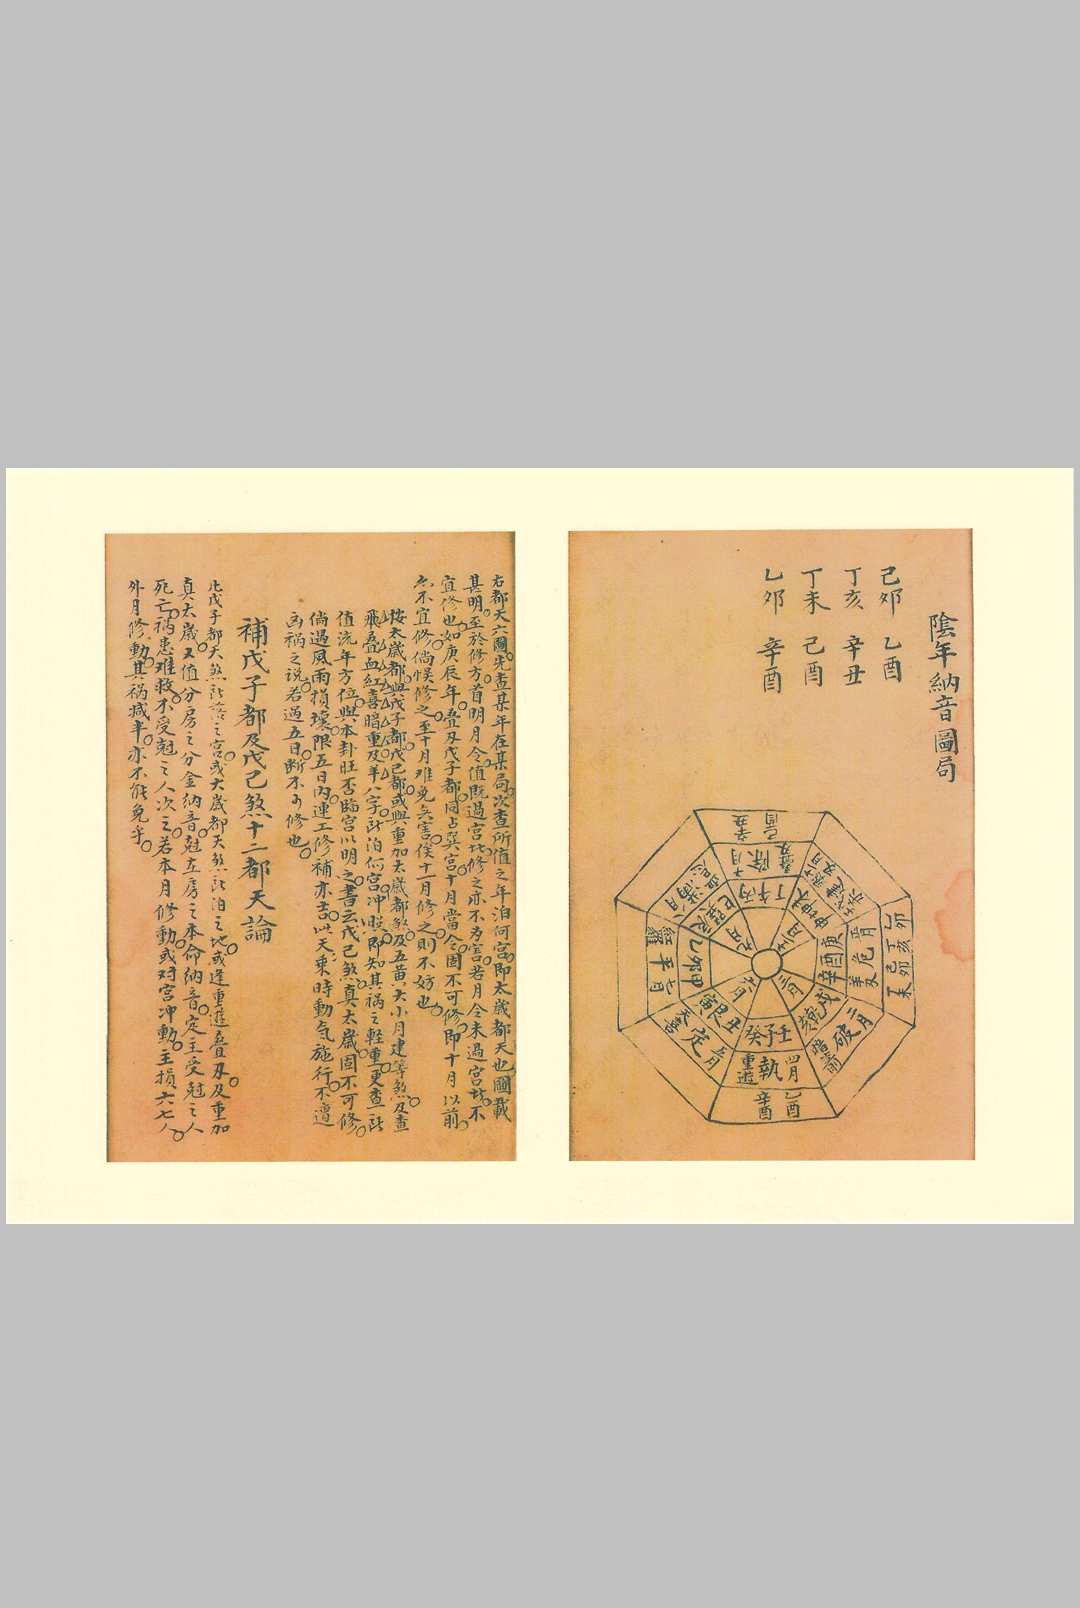 陰年納音圖局
己夘 乙酉
丁亥 辛丑
丁未 己酉
乙夘 辛酉
己酉
辛丑
除
月
丁午丙
申坤未
庚酉辛
危
二月
破
壬子癸
四月
執
重遊
乙酉
辛酉
丑艮寅
五月
定
天喜
甲夘乙
平
七月
紅羅
辰巽巳
滿
右都天六圖先查某年在某局次查所值之年泊何宮即太歲都天也圖載
甚明至於修方首明月令值既過宮此修之亦不為害若月令未過宮此不
宜修也如庚辰年叠及戊子都同占巽宮十月當令固不可修即十月以前
亦不宜修倘悮修之至十月难免灾害俟十一月修之則不妨也
按太歲都與戊子都戊己都或與重加太歲都煞及五黄大小月建等煞及查
飛叠血紅喜暗重及羊八字於泊何宮冲照即知其禍之輕重更查於
值流年方位與本卦旺否臨宮以明之書云戊己煞真太歲固不可修
倘遇風雨損壞限五日內連工修補亦吉此天乘時動氣施行不遭
凶禍之説若過五日断不可修也
補戊子都及戊己煞十二都天論
此戊子都天煞所落之宮或大歲都天煞所泊之地或逢重遊叠及及重加
真太歲又值分房之分金納音尅立房之本命納音定主受尅之人
死亡禍患难救不受尅之人次之若本月修動或对宮冲動主損六七人
外月修動其禍减半亦不能免乎